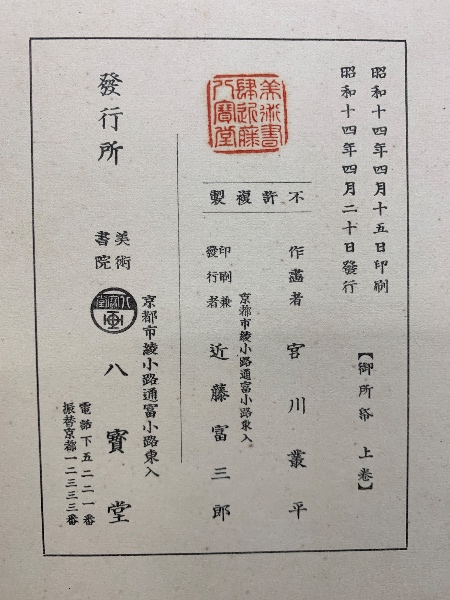 昭和十四年四月十五日印刷
昭和十四年四月二十日發行
【御所? 上卷】
不許複製
作畫者 宮川叢平
京都市綾小路通富小路東入
印刷兼
發行者 近藤富三郎
美術書
肆近藤
八寶堂
發行所
美術
書院
八寶堂
京都市綾小路通富小路東入
電話下五二二一番
振替京都一二三三三番